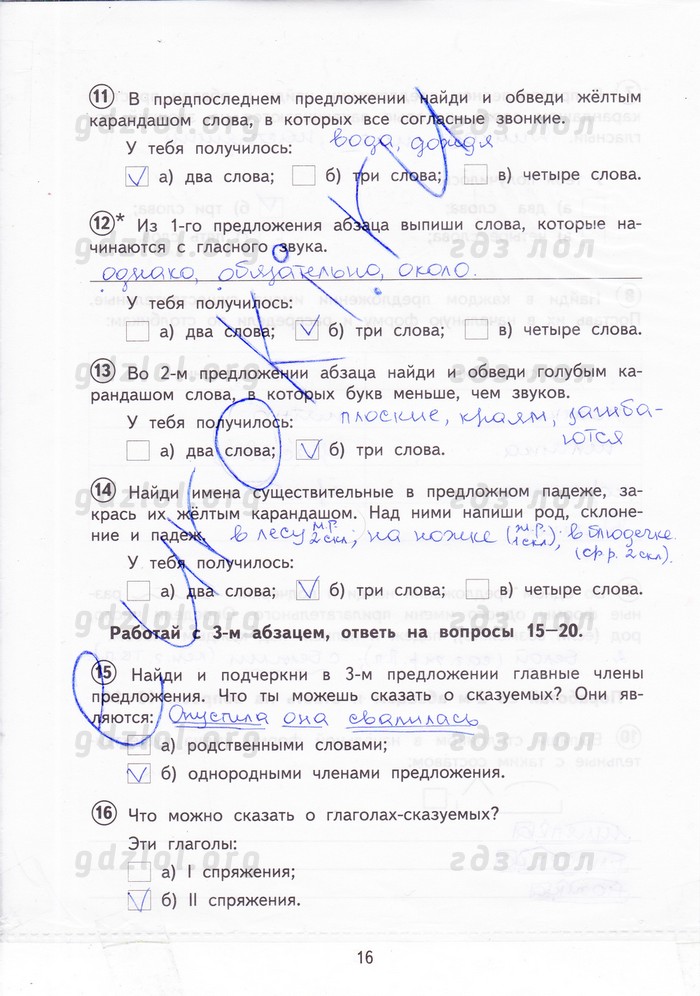 11 В предпоследнем предложении найди и обведи жёлтым
карандашом слова, в которых все согласные звонкие.
У тебя получилось: вода, дождя
а) два слова; б) три слова; в) четыре слова.
12* Из 1-го предложения абзаца выпиши слова, которые на-
чинаются с гласного звука.
однако, обязательно, около.
У тебя получилось:
а) два слова; б) три слова; в) четыре слова.
13 Во 2-м предложении абзаца найди и обведи голубым ка-
рандашом слова, в которых букв меньше, чем звуков.
У тебя получилось: плоские, краям, загиба-
ются
а) два слова; б) три слова.
14 Найди имена существительные в предложном падеже, за-
крась их жёлтым карандашом. Над ними напиши род, склоне-
ние и падеж. в лесу м.р. 2 скл.; на ножке (ж.р. 1 скл); в блюдечке. (ср р. 2 скл).
У тебя получилось:
а) два слова; б) три слова; в) четыре слова.
Работай с 3-м абзацем, ответь на вопросы 15–20.
15 Найди и подчеркни в 3-м предложении главные члены
предложения. Что ты можешь сказать о сказуемых? Они яв-
ляются: Опустила она свалилась
а) родственными словами;
б) однородными членами предложения.
16 Что можно сказать о глаголах-сказуемых?
Эти глаголы:
а) I спряжения;
б) II спряжения.
16
gdzlol.org гдз лол
gdzlol.org гдз лол
gdzlol.org гдз лол
gdzlol.org гдз лол
gdzlol.org гдз лол
gdzlol.org гдз лол
gdzlol.org гдз лол
gdzlol.org гдз лол